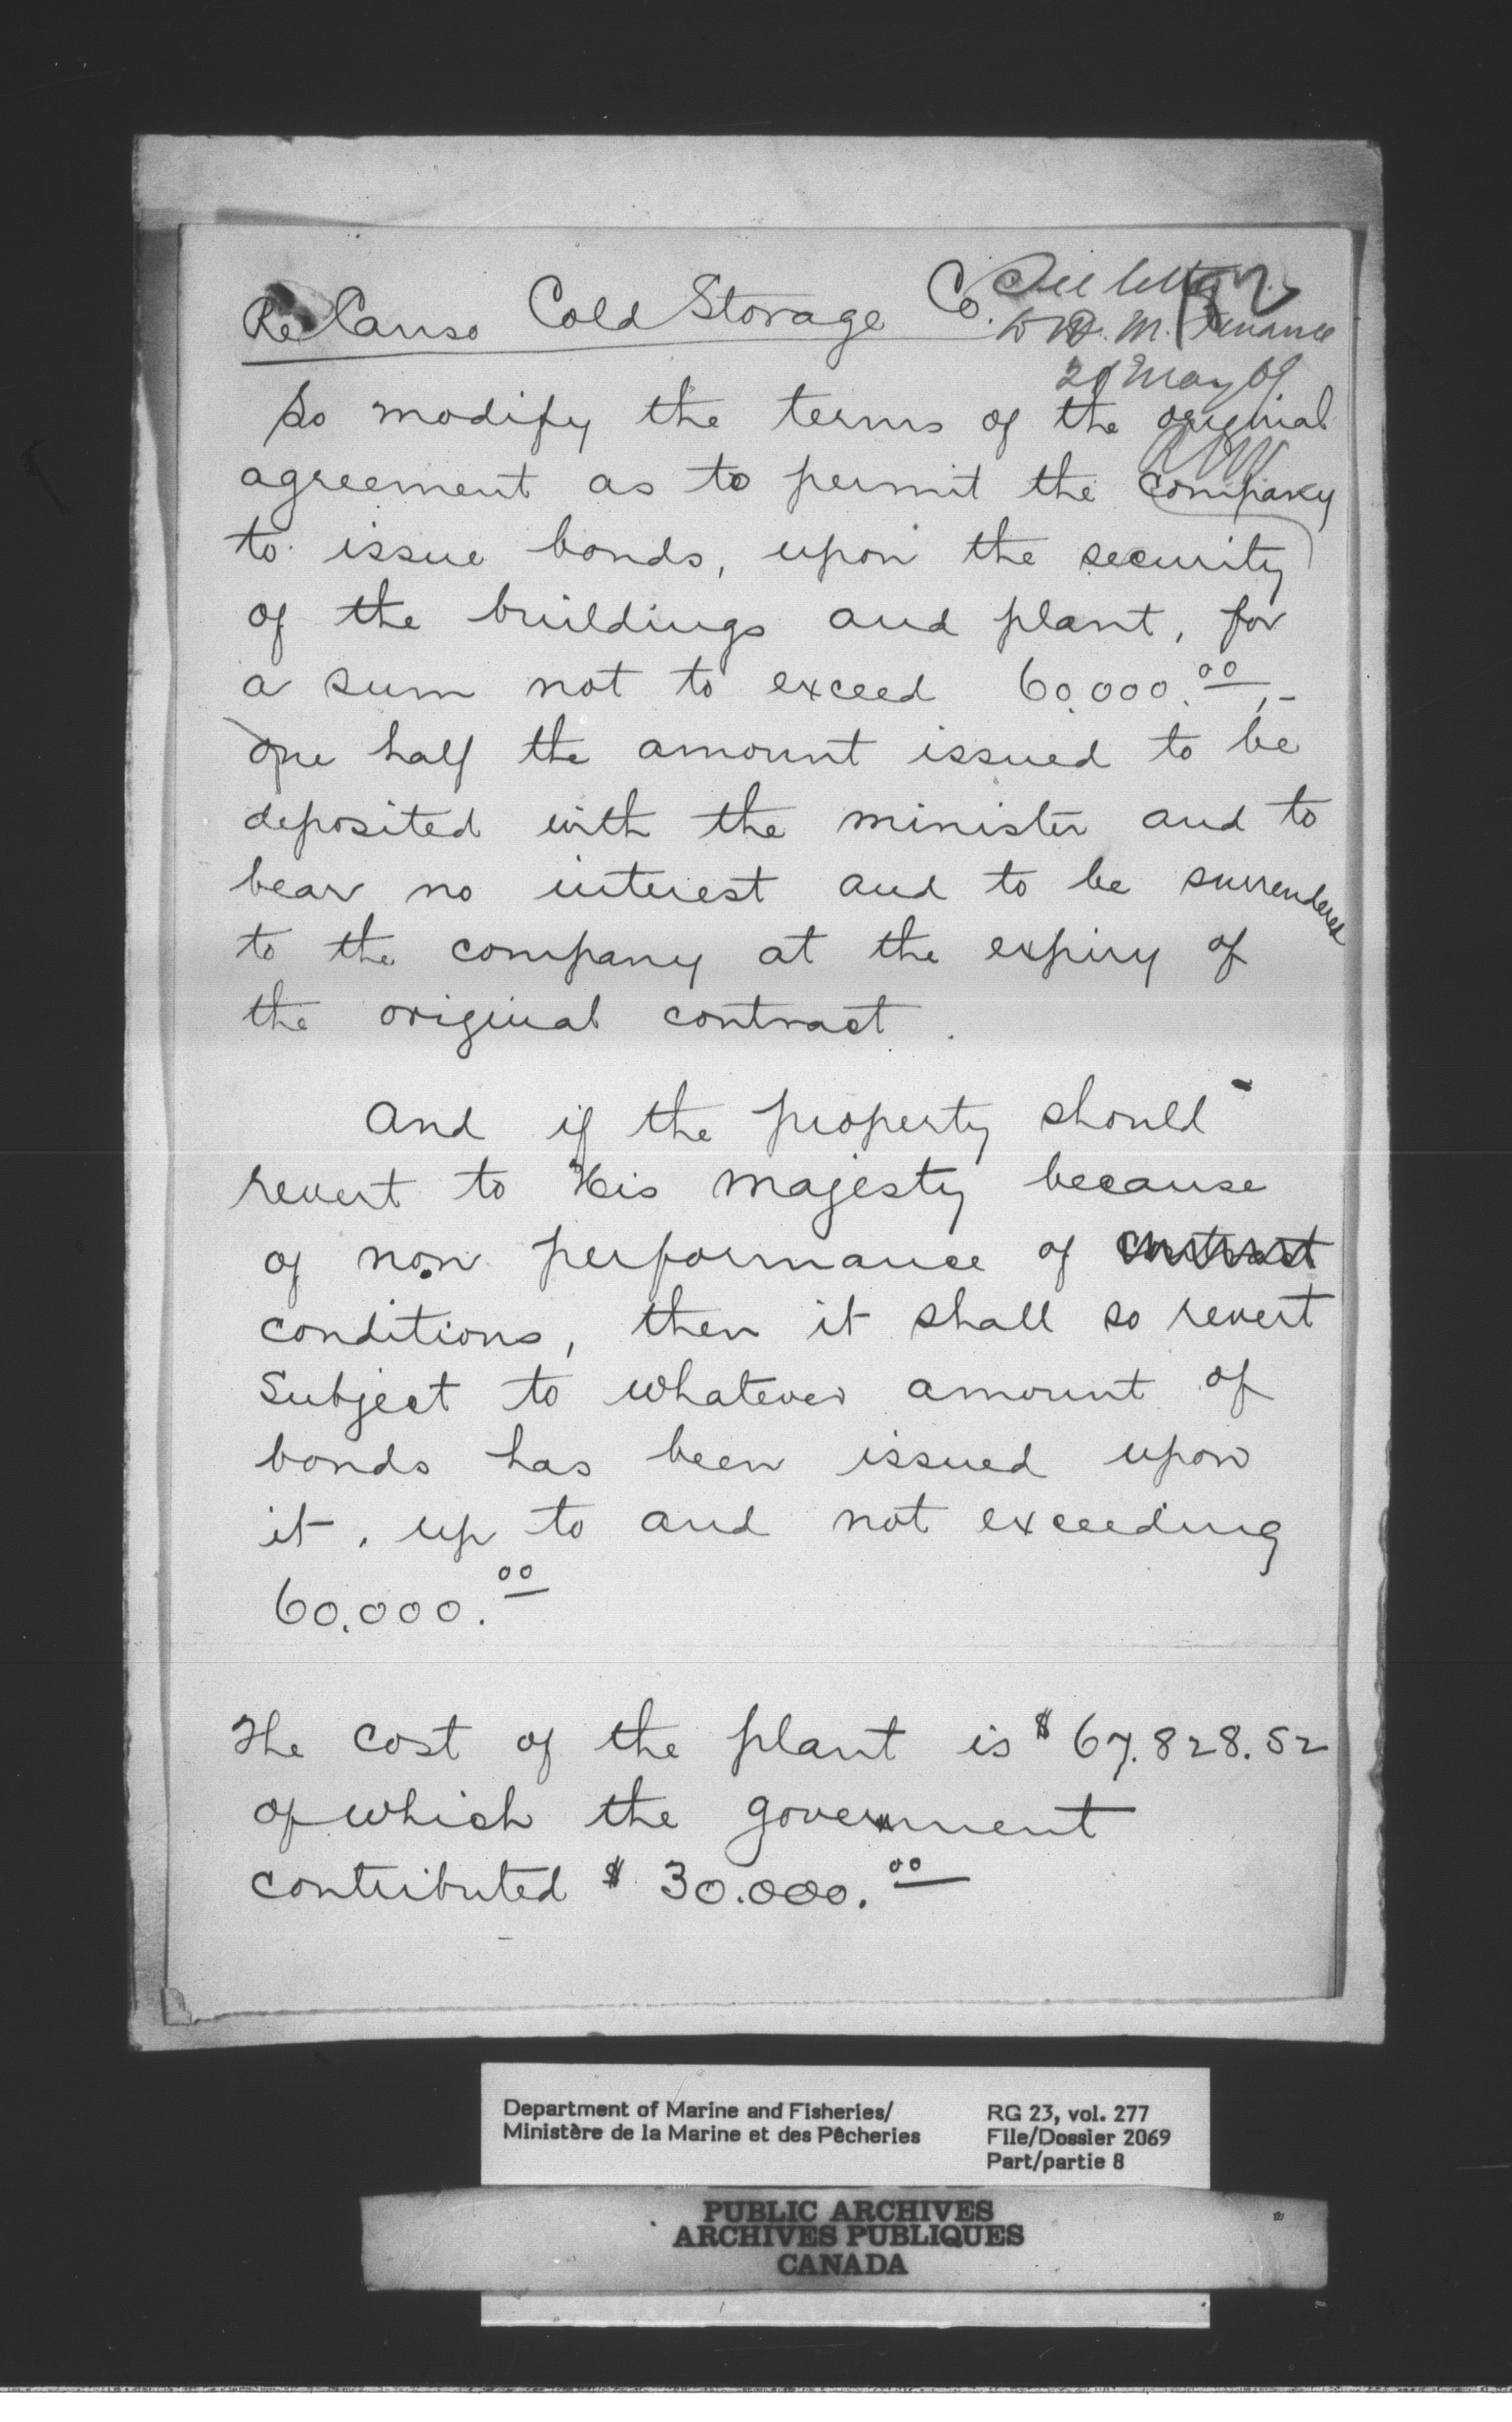 Re Canso Cold Storage Co.
See letter
to D. M. Finance
May 09
So modify the terms of the original
agreement as to permit the company
to issue bonds, upon the security
of the buildings and plant, for
a sum not to exceed 60.000.00,-
one half the amount issued to be
deposited with the minister and to
bear no interest and to be surrendered
to the company at the expiry of
the original contract.
And if the property should
revert to His Majesty because
of non performance of contract
conditions, then it shall so revert
Subject to whatever amount of
bonds has been issued upon
it, up to and not exceeding
60.000.00
The cost of the plant is $67.828.52
of which the government
contributed $30.000.00
Department of Marine and Fisheries/
Ministère de la Marine et des Pêcheries
RG 23, vol. 277
File/Dossier 2069
Part/partie 8
PUBLIC ARCHIVES
ARCHIVES PUBLIQUES
CANADA